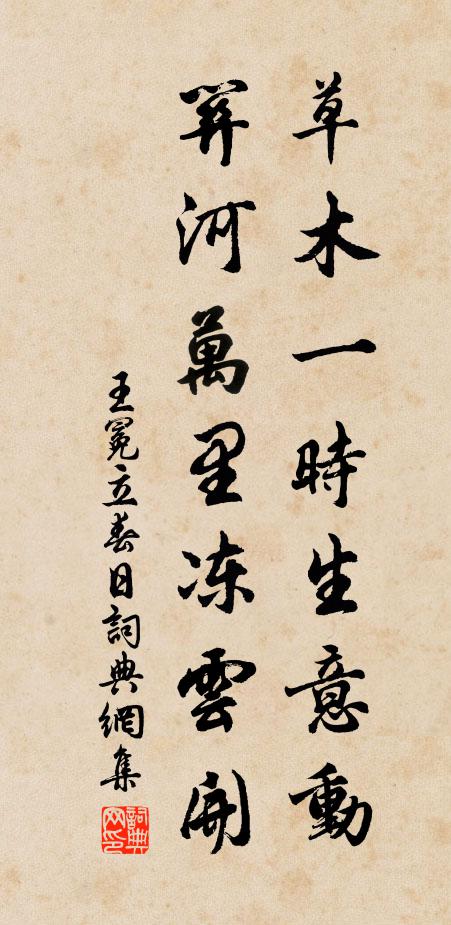 草木一時生意動
關河萬里凍雲開
王冕立春日詞典網集
詞典網印